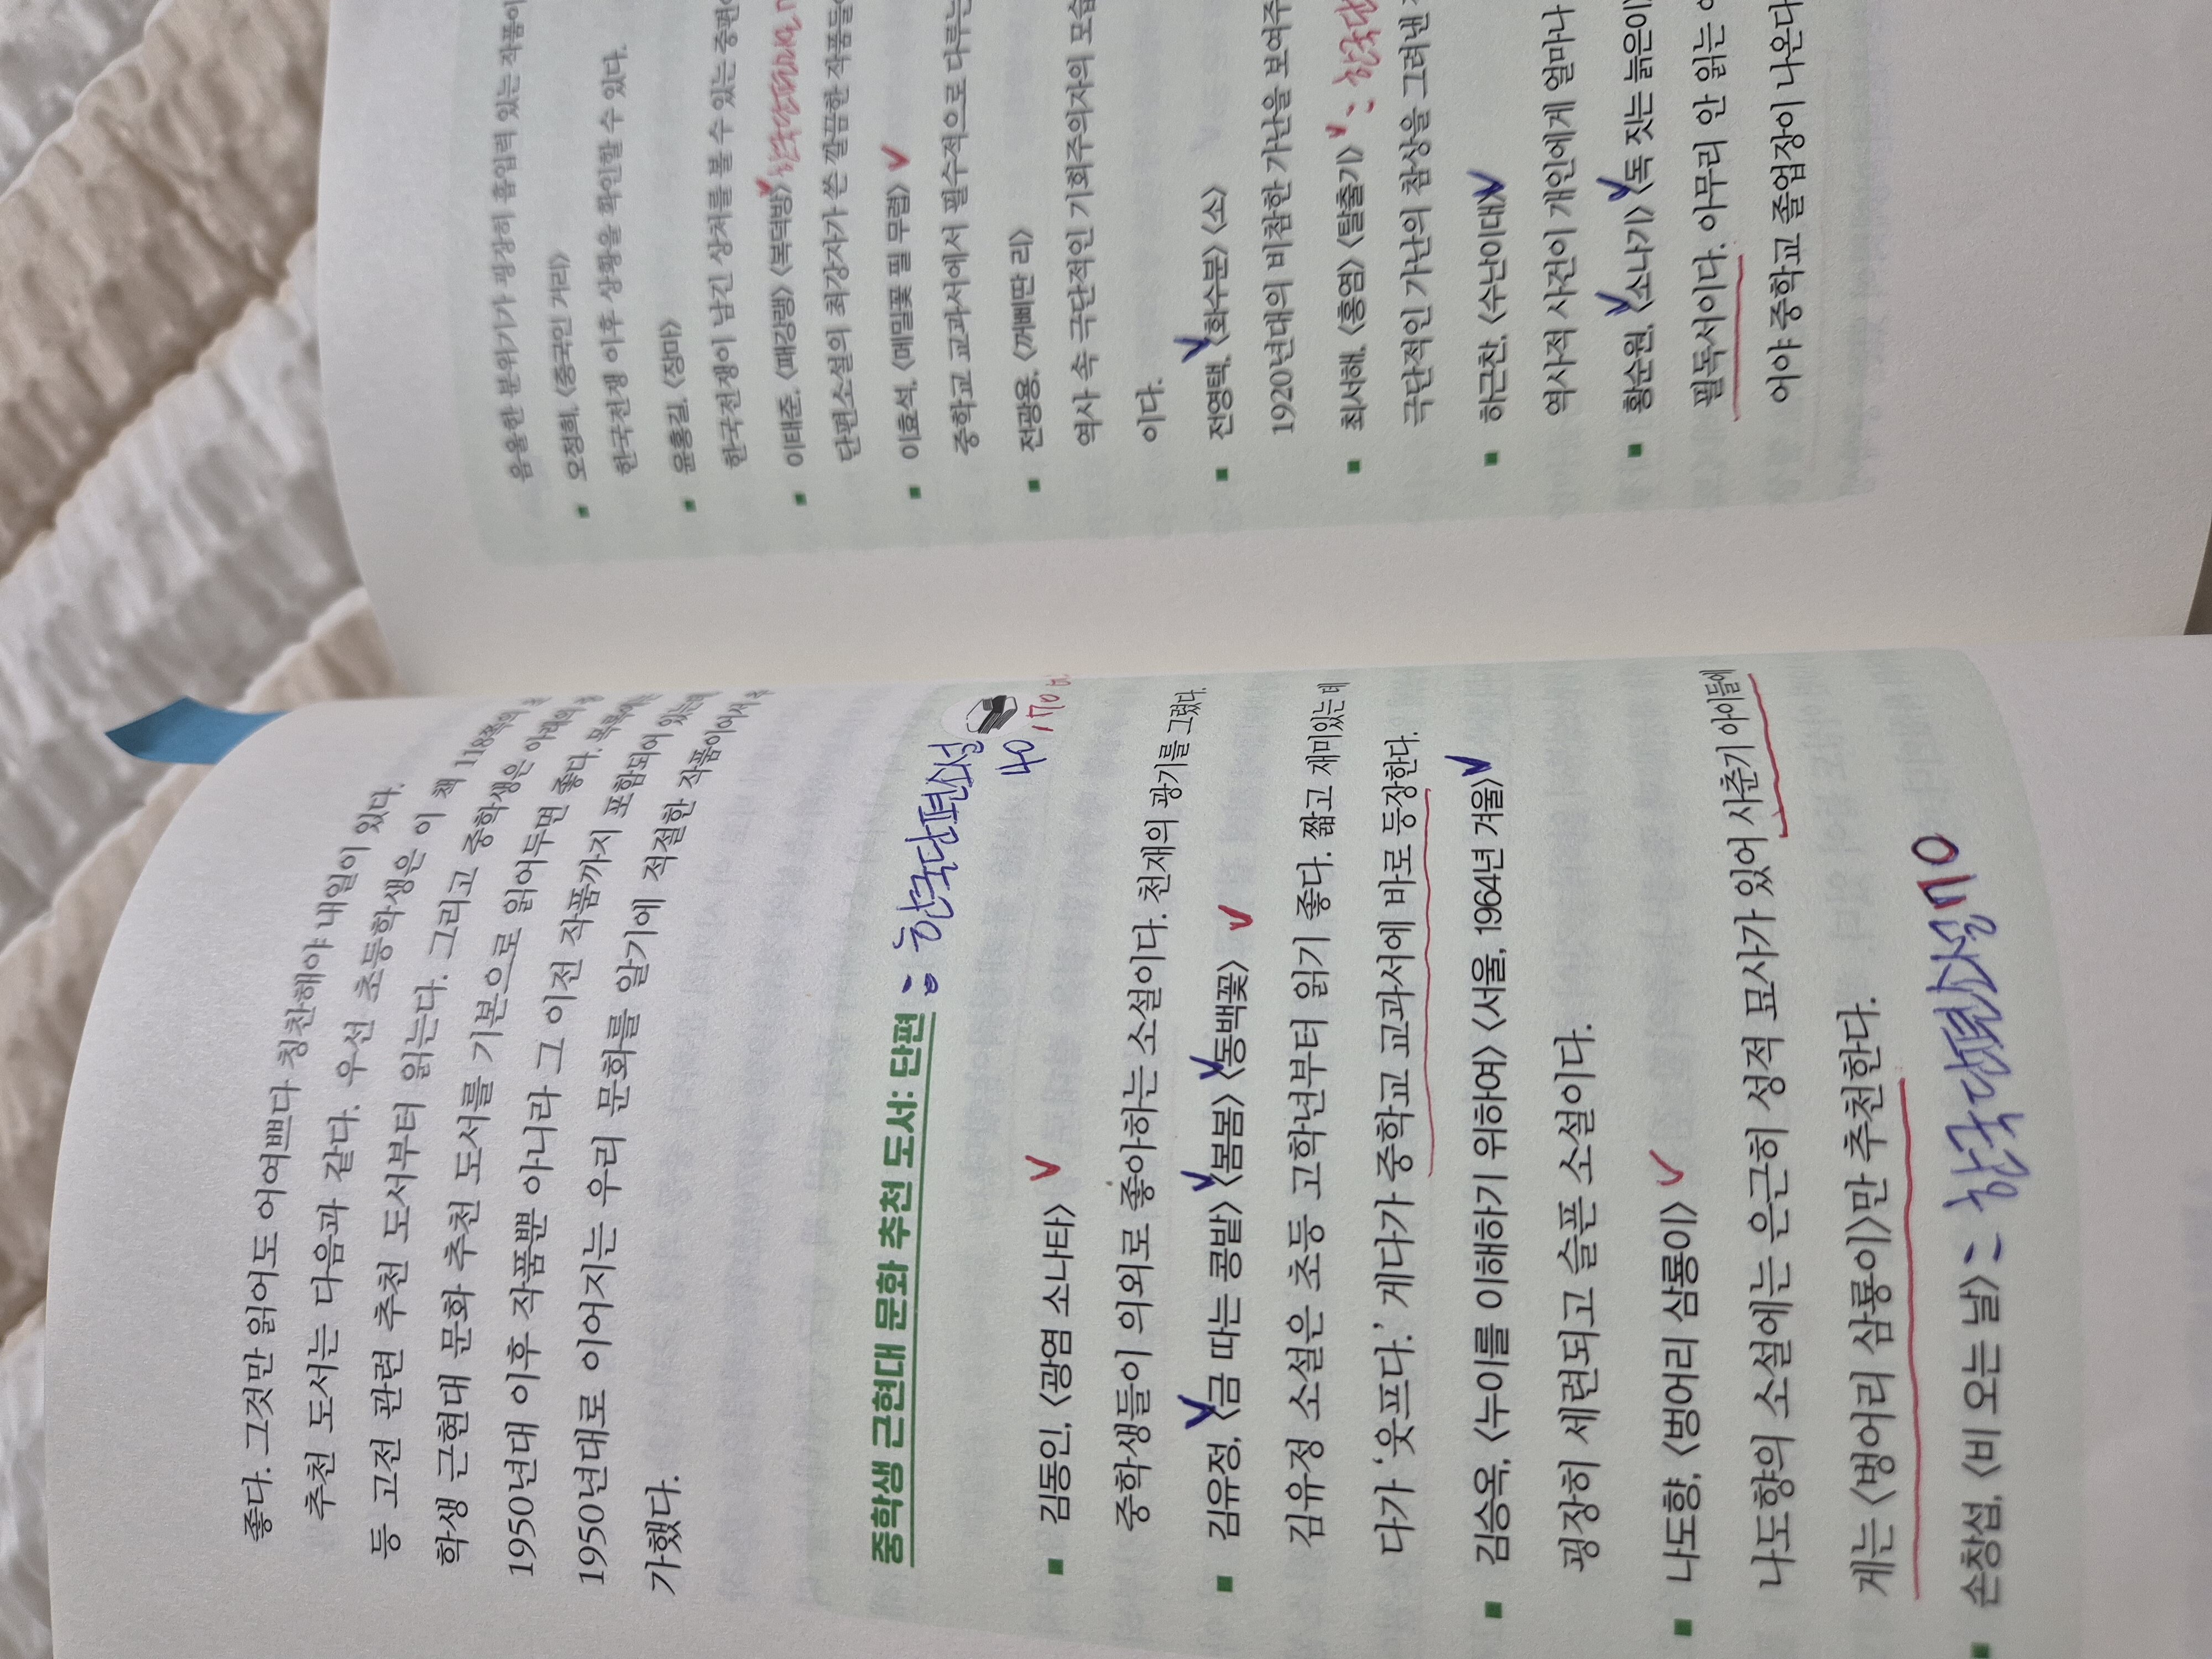 좋다. 그것만 읽어도 어여쁘다 칭찬해야 내일이 있다.
추천 도서는 다음과 같다. 우선 초등학생은 이 책 118쪽의
등 고전 관련 추천 도서부터 읽는다. 그리고 중학생은 아래의
학생 근현대 문화 추천 도서를 기본으로 읽어두면 좋다.
1950년대 이후 작품뿐 아니라 그 이전 작품까지 포함되어 있는데
1950년대로 이어지는 우리 문화를 알기에 적절한 작품이어서
가했다.
중학생 근현대 문화 추천 도서: 단편 : 한국단편소설
40, 70
김동인, 〈광염 소나타〉 ✓
중학생들이 의외로 좋아하는 소설이다. 천재의 광기를 그렸다.
김유정, ✓〈금 따는 콩밭〉 ✓〈봄봄〉 ✓〈동백꽃〉 ✓
김유정 소설은 초등 고학년부터 읽기 좋다. 짧고 재미있는데
다가 ‘웃프다.’ 게다가 중학교 교과서에 바로 등장한다.
김승옥, 〈누이를 이해하기 위하여〉 〈서울, 1964년 겨울〉 ✓
굉장히 세련되고 슬픈 소설이다.
나도향, 〈벙어리 삼룡이〉 ✓
나도향의 소설에는 은근히 성적 묘사가 있어 사춘기 아이들에
게는 〈벙어리 삼룡이〉만 추천한다.
손창섭, 〈비 오는 날〉 : 한국단편소설70
음울한 분위기가 굉장히 흡입력 있는 작품이
오정희, 〈중국인 거리〉
한국전쟁 이후 상황을 확인할 수 있다.
윤흥길, 〈장마〉
한국전쟁이 남긴 상처를 볼 수 있는 중편
이태준, 〈패강랭〉 〈복덕방〉 ✓ 한국단편소설
단편소설의 최강자가 쓴 깔끔한 작품들
이효석, 〈메밀꽃 필 무렵〉 ✓
중학교 교과서에서 필수적으로 다루는
전광용, 〈꺼삐딴 리〉
역사 속 극단적인 기회주의자의 모습
이다.
전영택, ✓〈화수분〉 〈소〉
1920년대의 비참한 가난을 보여주
최서해, 〈홍염〉 〈탈출기〉 ✓ : 한국단
극단적인 가난의 참상을 그려낸
하근찬, 〈수난이대〉 ✓
역사적 사건이 개인에게 얼마나
황순원, ✓〈소나기〉 ✓〈독 짓는 늙은이〉
필독서이다. 아무리 안 읽는
어야 중학교 졸업장이 나온다